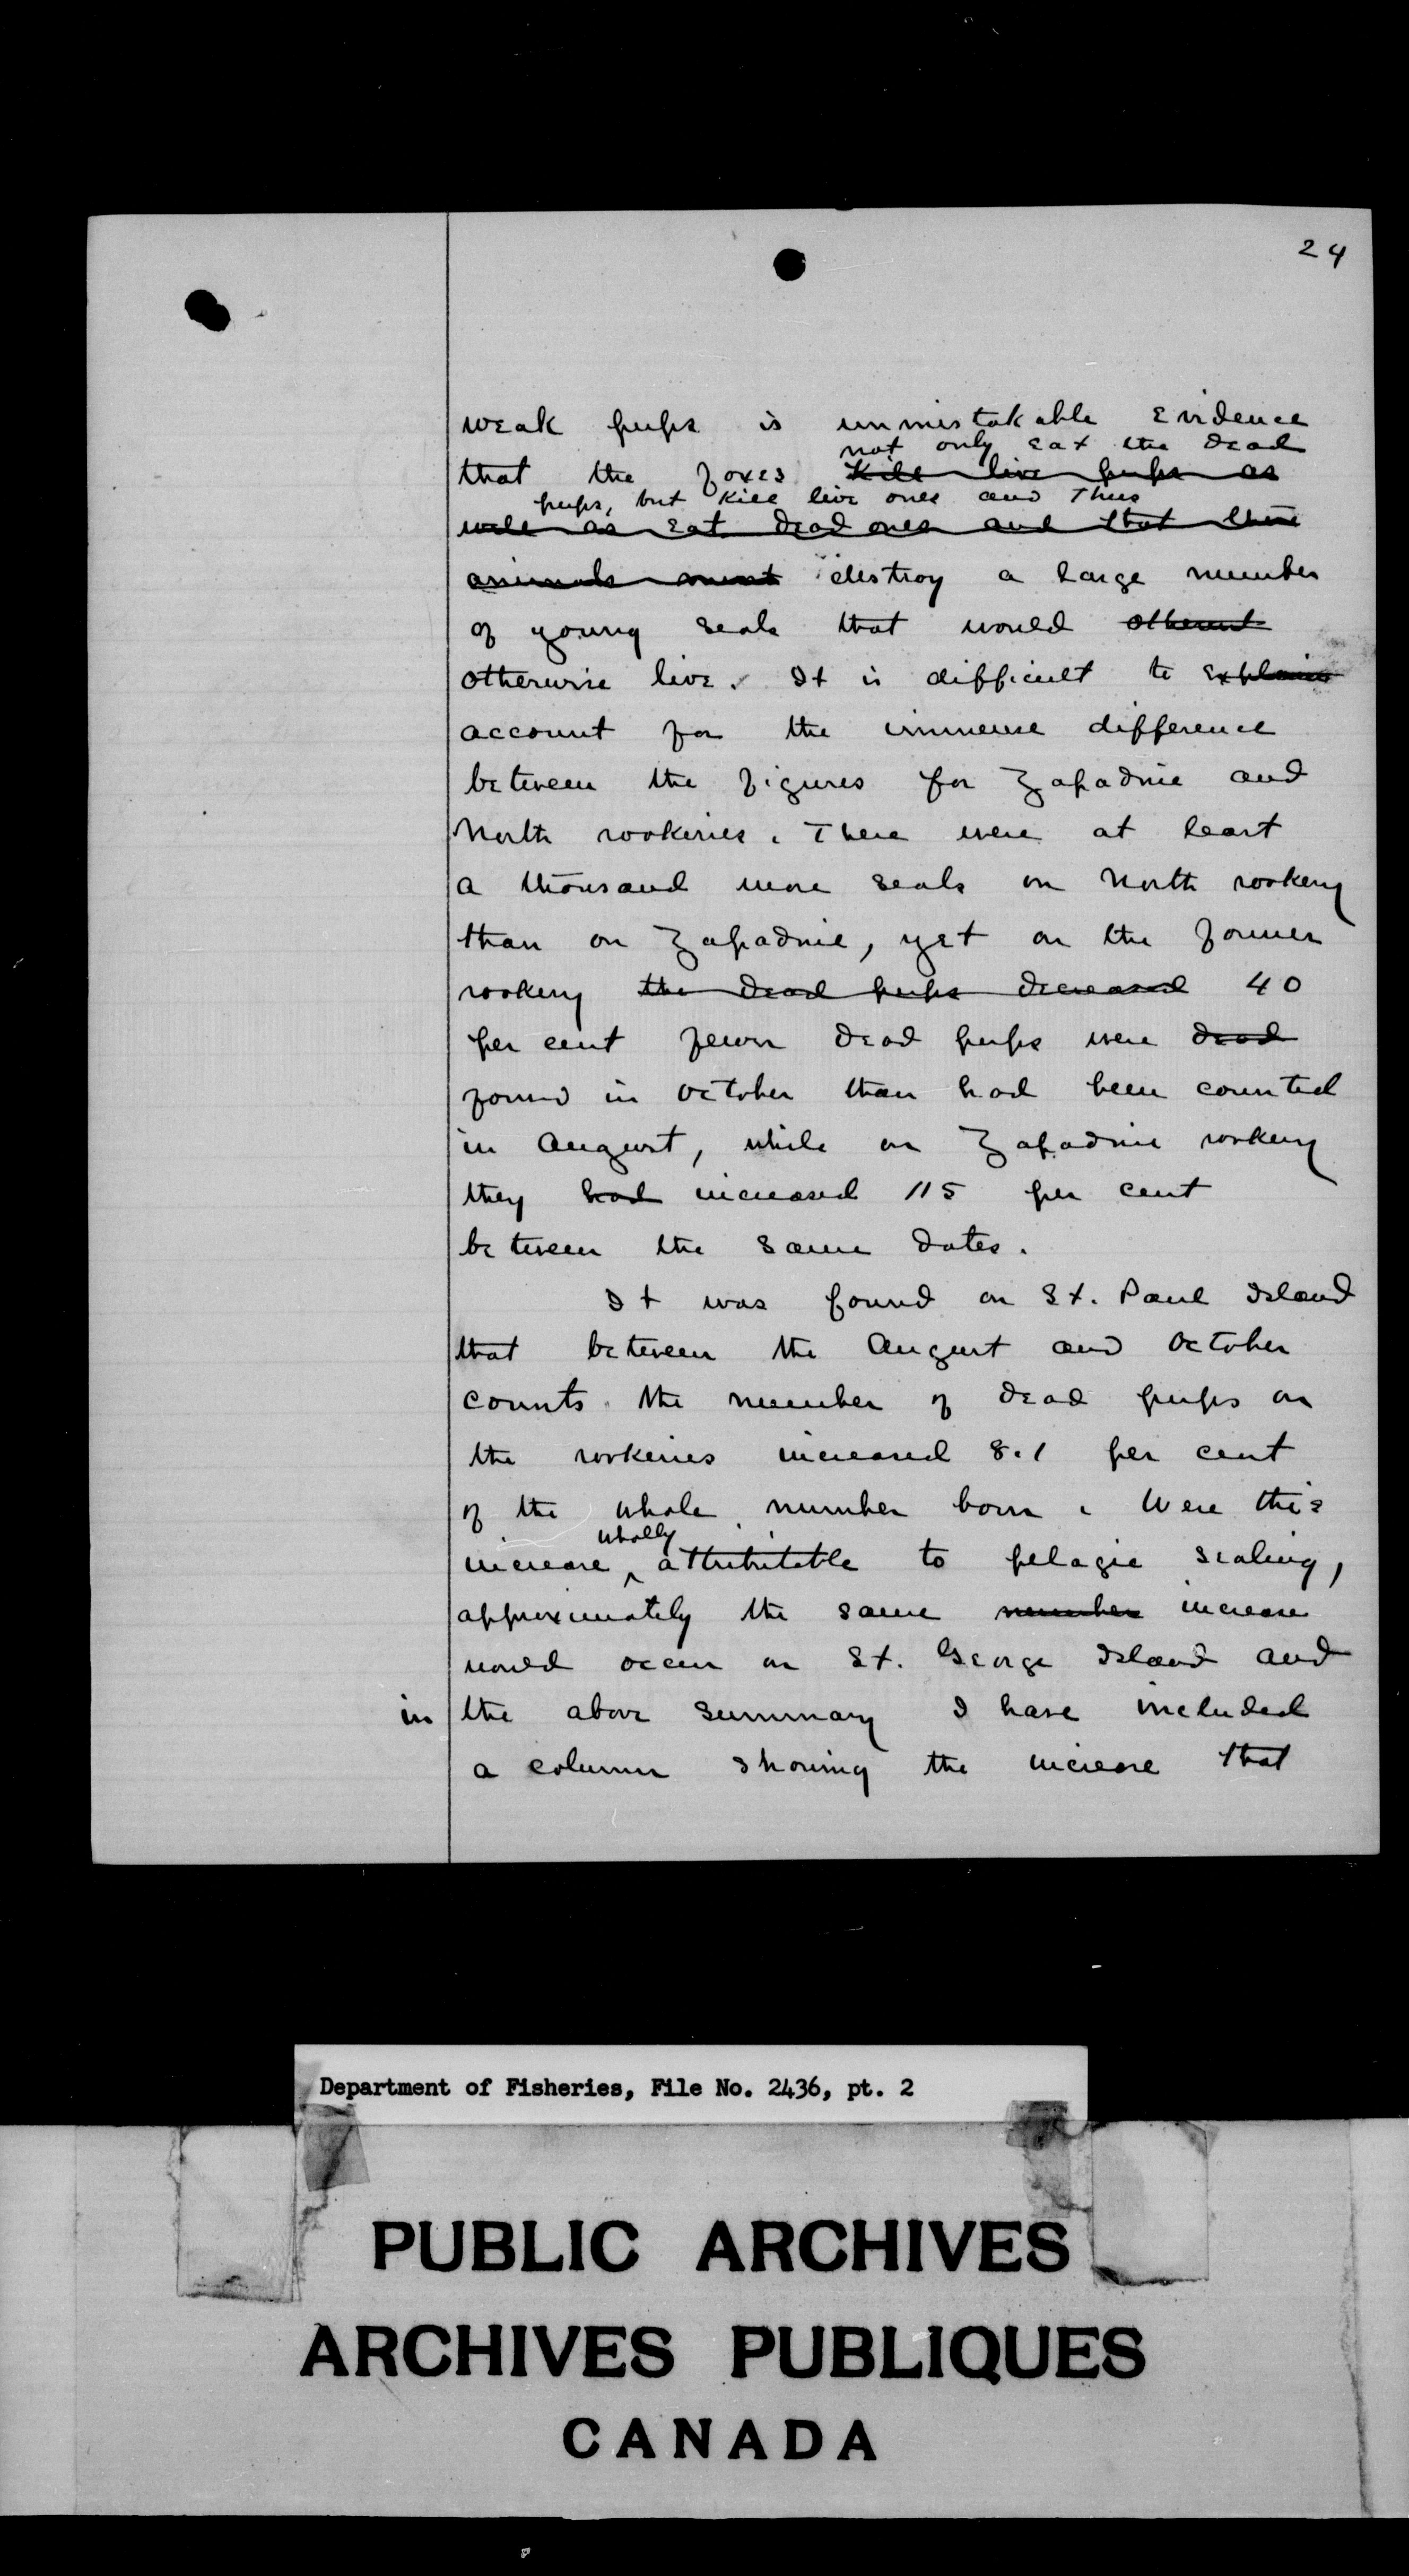 24
weak pups is unmistakable evidence
not only eat the dead
that the foxes kill live pups as
pups, but kill live ones and thus
well as eat dead ones and that these
animals must destroy a large number
of young seals that would otherwise
otherwise live. It is difficult to explain
account for the immense difference
between the figures for Zapadnie and
North rookeries. There were at least
a thousand more seals on North rookery
than on Zapadnie, yet on the former
rookery the dead pups decreased 40
per cent fewer dead pups were dead
found in October than had been counted
in August, while on Zapadnie rookery
they had increased 115 per cent
between the same dates.
It was found on St. Paul Island
that between the August and October
counts the number of dead pups on
the rookeries increased 8.1 per cent
of the whole number born. Were this
wholly
increase ^ attributable to pelagic sealing,
approximately the same number increase
would occur on St. George Island and
in the above summary I have included
a column showing the increase that
Department of Fisheries, File No. 2436, pt. 2
PUBLIC ARCHIVES
ARCHIVES PUBLIQUES
CANADA